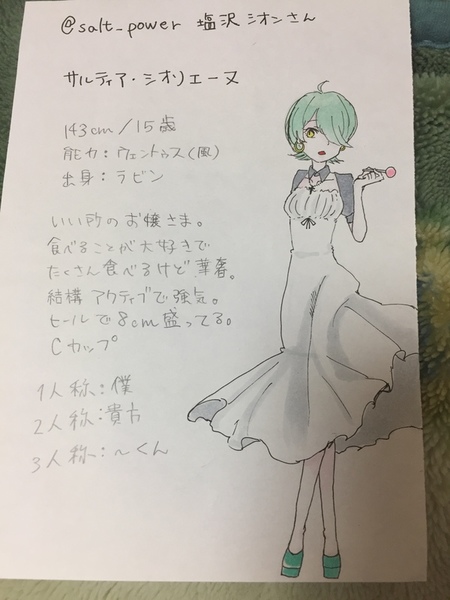 @salt_power 塩沢シオンさん
サルティア・シオリエーヌ
143cm/15歳
能力：ウェントゥス(風)
出身：ラビン
いい所のお嬢さま。
食べることが大好きで
たくさん食べるけど華奢。
結構アクティブで強気。
ヒールで8cm盛ってる。
Cカップ
1人称：僕
2人称：貴方
3人称：〜くん